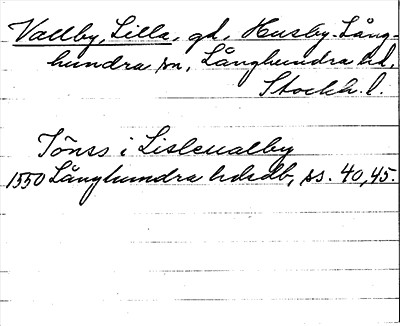 Vallby, Lilla, gd, Husby-Lång-
hundra sn, Långhundra hd,
Stockh. l.
Tönss i Lisleualby
1550 Långhundra hdsdb, ss. 40, 45.